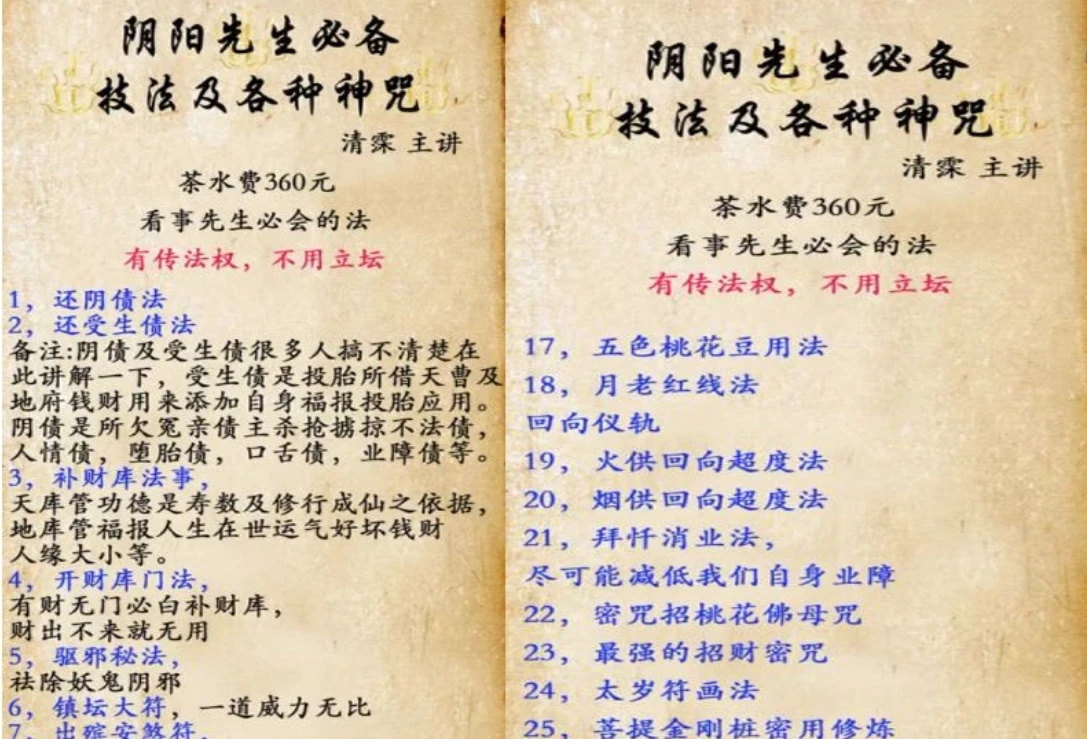 阴阳先生必备
技法及各种神咒
清霂 主讲
茶水费360元
看事先生必会的法
有传法权，不用立坛
1，还阴债法
2，还受生债法
备注:阴债及受生债很多人搞不清楚在
此讲解一下，受生债是投胎所借天曹及
地府钱财用来添加自身福报投胎应用。
阴债是所欠冤亲债主杀抢掳掠不法债，
人情债，堕胎债，口舌债，业障债等。
3，补财库法事，
天库管功德是寿数及修行成仙之依据，
地库管福报人生在世运气好坏钱财
人缘大小等。
4，开财库门法，
有财无门必白补财库，
财出不来就无用
5，驱邪秘法，
祛除妖鬼阴邪
6，镇坛大符，一道威力无比
7，出殡安煞符，
阴阳先生必备
技法及各种神咒
清霂 主讲
茶水费360元
看事先生必会的法
有传法权，不用立坛
17，五色桃花豆用法
18，月老红线法
回向仪轨
19，火供回向超度法
20，烟供回向超度法
21，拜忏消业法，
尽可能减低我们自身业障
22，密咒招桃花佛母咒
23，最强的招财密咒
24，太岁符画法
25，菩提金刚桩密用修炼